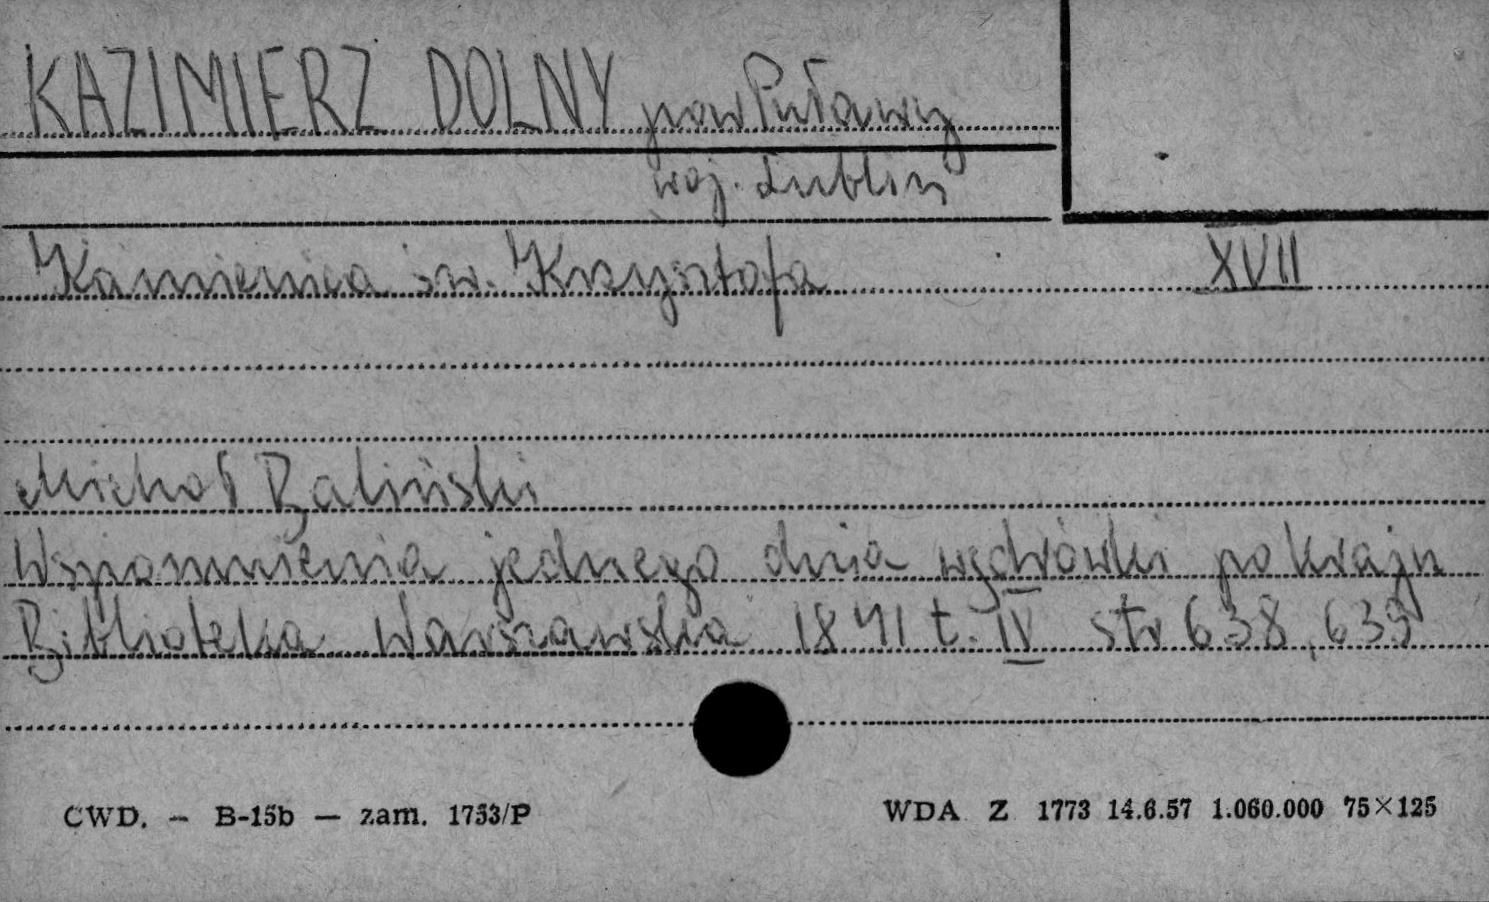 KAZIMIERZ DOLNY pow Puławy
woj. Lublin
Kamienica św. Krzysztofa XVII
Michał Baliński
Wspomnienia jednego dnia wędrówki po kraju
Biblioteka Warszawska 1841 t. IV str 638, 639
CWD. — B-15b — zam. 1753/P WDA Z 1773 14.6.57 1.060.000 75×125